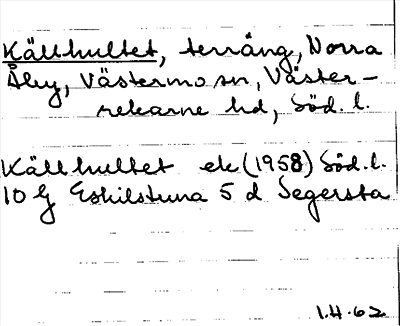 Källhultet, terräng, Norra
Åby, Västermo sn, Väster-
rekarne hd, Söd. l.
Källhultet ek (1958) Söd. l.
10 G Eskilstuna 5 d Segersta
1.H.62